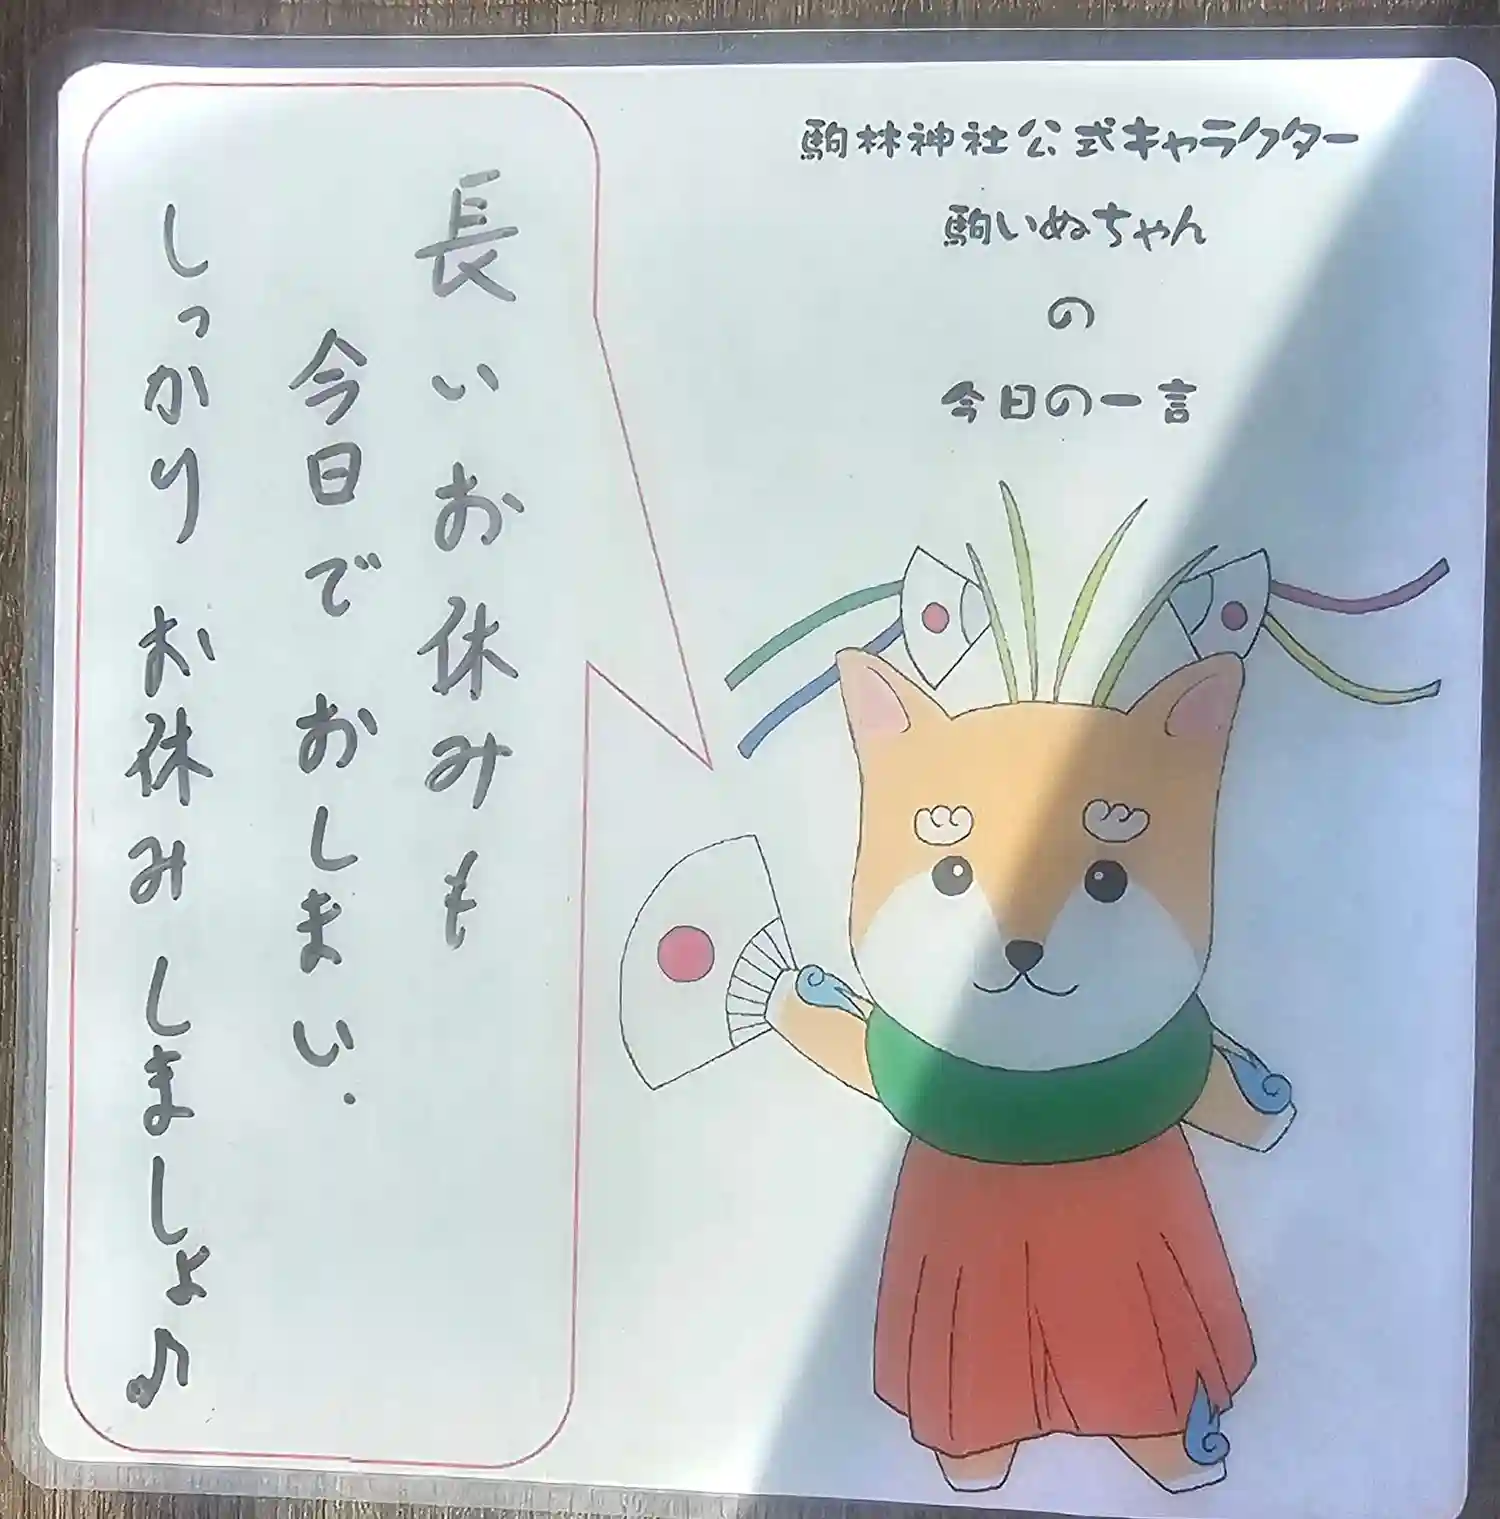 駒林神社公式キャラクター
駒いぬちゃん
の
今日の一言
長いお休みも
今日でおしまい.
しっかりお休みしましょ♪